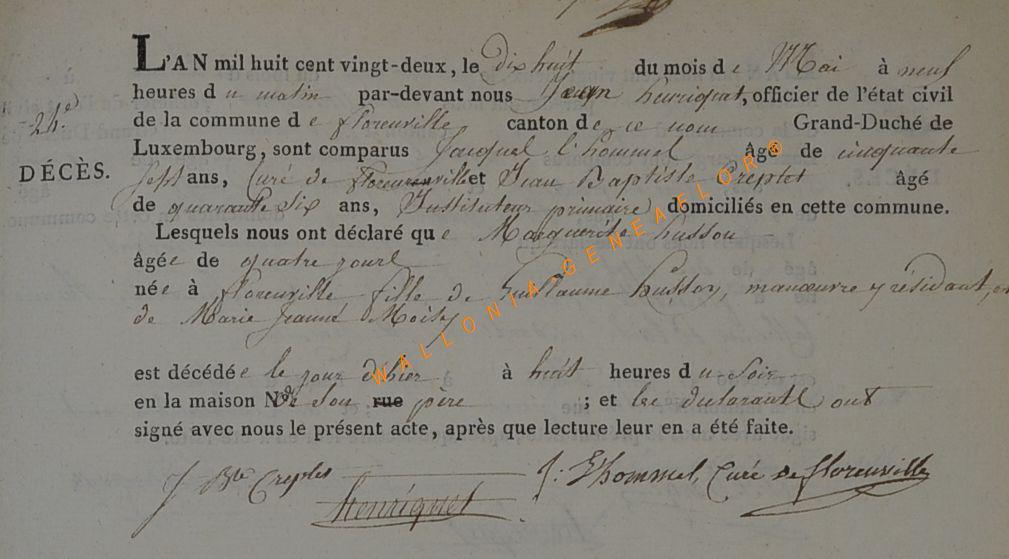 L'AN mil huit cent vingt-deux, le dix huit du mois de Mai à neuf
heures du matin par-devant nous Jean henriquet, officier de l'état civil
24e
de la commune de florenville canton de ce nom Grand-Duché de
Luxembourg, sont comparus Jacques l'hommel âgé de cinquante
DÉCÈS.
sept ans, Curé de florenville et Jean Baptiste Creplet âgé
de quarante six ans, Instituteur primaire domiciliés en cette commune.
Lesquels nous ont déclaré que Marguerite husson
âgée de quatre jours
née à florenville fille de Guillaume husson, manœuvre y résidant, et
de Marie Jeanne Moisy
est décédée le jour d'hier à huit heures du Soir
en la maison No de son rue père ; et les déclarants ont
signé avec nous le présent acte, après que lecture leur en a été faite.
J Bte Creplet
henriquet
J. L'hommel, Curé de florenville
WALLONIA GENEAFLOR®